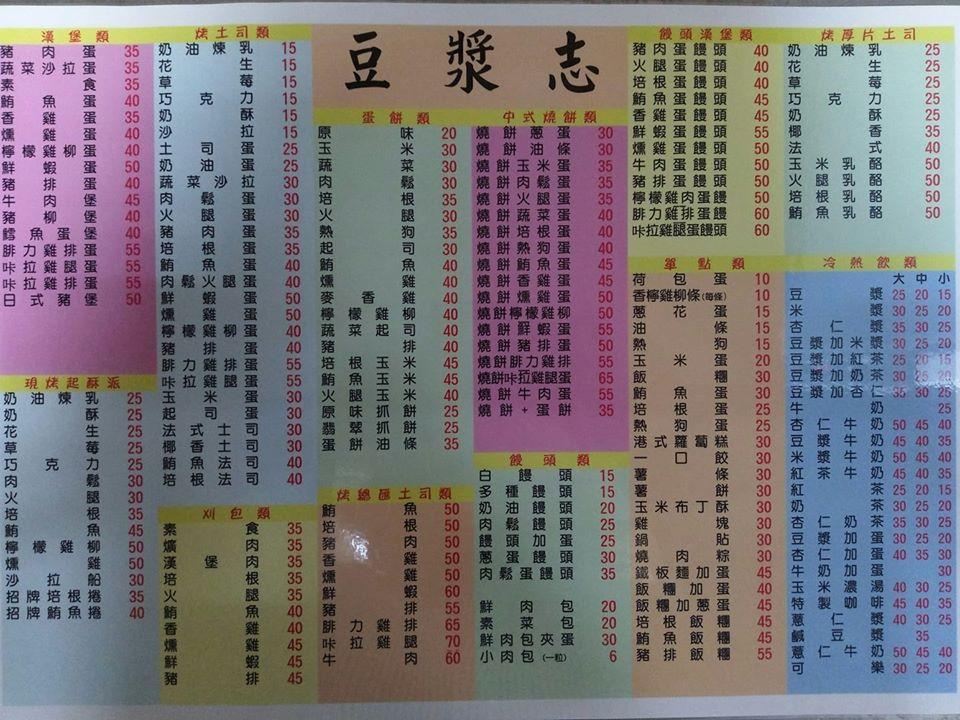 豆漿志
漢堡類
豬肉蛋 35
蔬菜沙拉蛋 35
素食 35
鮪魚蛋 40
香雞蛋 35
燻雞蛋 40
檸檬雞柳蛋 40
鮮蝦蛋 50
豬排蛋 40
牛肉堡 45
豬柳堡 40
鱈魚蛋堡 40
腓力雞排蛋 55
咔拉雞腿蛋 55
咔拉雞排蛋 55
日式豬堡 50
現烤起酥派
奶油煉乳 25
奶酥 25
花生 25
草莓 25
巧克力 25
肉鬆 30
火腿 30
培根 35
鮪魚 45
檸檬雞柳 50
燻雞 50
沙拉船 30
招牌培根捲 35
招牌鮪魚捲 40
烤土司類
奶油煉乳 15
花生 15
草莓 15
巧克力 15
奶酥 15
沙拉 15
土司蛋 25
奶油蛋 25
蔬菜沙拉 30
肉鬆蛋 30
火腿蛋 30
豬肉蛋 35
培根蛋 35
鮪魚蛋 40
肉鬆火腿蛋 40
鮮蝦蛋 50
燻雞蛋 50
檸檬雞柳蛋 40
豬排蛋 40
腓力雞排蛋 55
咔拉雞腿蛋 55
玉米蛋 30
起司蛋 30
法式土司 30
椰香土司 30
鮪魚法司 40
培根法司 40
刈包類
素食 35
爌肉 35
漢堡肉 35
培根 35
火腿 35
鮪魚 40
香雞 40
燻雞 45
鮮蝦 45
豬排 45
蛋餅類
原味 20
玉米 30
蔬菜 30
肉鬆 30
培根 35
火腿 30
熱狗 35
起司 30
鮪魚 40
燻雞 40
麥香雞 40
檸檬雞柳 40
蔬菜起司 40
豬排 40
培根玉米 45
鮪魚玉米 45
火腿玉米 40
原味抓餅 25
翡翠抓餅 25
蛋餅油條 35
烤總匯土司類
鮪魚 50
培根 50
豬肉 50
香雞 50
燻雞 50
鮮蝦 60
豬排 55
腓力雞排 65
咔拉雞腿 70
牛肉 60
中式燒餅類
燒餅蔥蛋 30
燒餅油條 30
燒餅玉米蛋 35
燒餅肉鬆蛋 35
燒餅火腿蛋 35
燒餅蔬菜蛋 40
燒餅培根蛋 40
燒餅熱狗蛋 40
燒餅鮪魚蛋 45
燒餅香雞蛋 45
燒餅燻雞蛋 50
燒餅檸檬雞柳 50
燒餅鮮蝦蛋 50
燒餅豬排蛋 50
燒餅腓力雞排 55
燒餅咔拉雞腿蛋 65
燒餅牛肉蛋 55
燒餅+蛋餅 35
饅頭類
白饅頭 15
多種饅頭 15
奶油饅頭 20
肉鬆饅頭 25
饅頭加蛋 25
蔥蛋饅頭 30
肉鬆蛋饅頭 35
鮮肉包 20
素菜包 20
鮮肉包夾蛋 30
小肉包(一粒) 6
饅頭漢堡類
豬肉蛋饅頭 40
火腿蛋饅頭 40
培根蛋饅頭 40
鮪魚蛋饅頭 45
香雞蛋饅頭 45
鮮蝦蛋饅頭 55
燻雞蛋饅頭 50
牛肉蛋饅頭 50
豬排蛋饅頭 50
檸檬雞肉蛋饅 50
腓力雞排蛋饅 60
咔拉雞腿蛋饅頭 60
單點類
荷包蛋 10
香檸雞柳條(每條) 10
蔥花蛋 15
油條 15
熱狗 15
玉米蛋 20
飯糰 30
鮪魚蛋 30
培根蛋 25
熱狗蛋 25
港式蘿蔔糕 30
一口餃 30
薯條 30
薯餅 30
玉米布丁酥 30
雞塊 30
鍋貼 30
燒肉粽 30
鐵板麵加蛋 45
飯糰加蛋 40
飯糰加蔥蛋 45
培根飯糰 45
鮪魚飯糰 45
豬排飯糰 55
烤厚片土司
奶油煉乳 25
花生 25
草莓 25
巧克力 25
奶酥 25
椰香 35
法式 40
玉米乳酪 50
火腿乳酪 50
培根乳酪 50
鮪魚乳酪 50
冷熱飲類
大 中 小
豆漿 25 20 15
米漿 30 25 20
杏仁漿 35 30 25
豆漿加米漿 30 25 20
豆漿加紅茶 25 20 15
豆漿加奶茶 30 25 20
豆漿加杏仁 35 30 25
牛奶 25
杏仁牛奶 50 45 40
豆漿牛奶 50 45 40
米漿牛奶 50 45 40
紅茶牛奶 45 40 35
紅茶 25 20 15
奶茶 30 25 20
杏仁奶茶 35 30 25
豆漿加蛋 30 25
杏仁加蛋 40 35 30
牛奶加蛋 30
玉米濃湯 40 30 25
特製咖啡 45 40 35
薏仁漿 40 30 25
鹹豆漿 35
薏仁牛奶 50 45 40
可樂 30 25 20